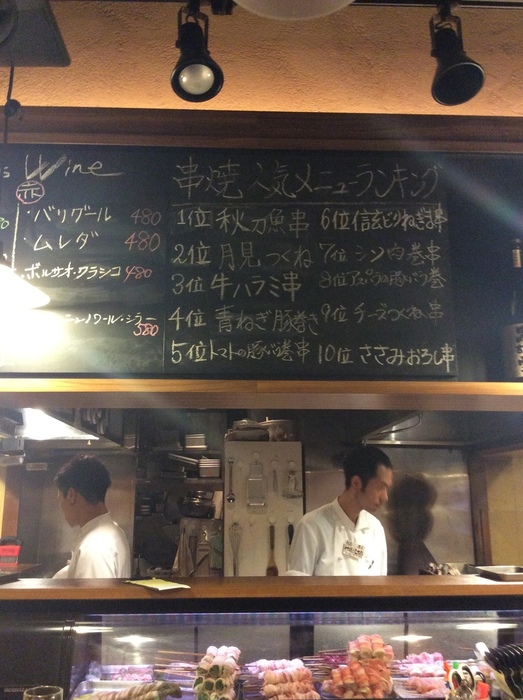 s Wine
赤
・バリグール 480
・ムレダ 480
・ボルサオ・クラシコ 480
ノワール・シラー
580
串焼 人気メニューランキング
1位 秋刀魚串
2位 月見つくね
3位 牛ハラミ串
4位 青ねぎ豚巻き
5位 トマトの豚バラ巻串
6位 信玄どりねぎま串
7位 シソ肉巻串
8位 アスパラの豚バラ巻
9位 チーズつくね串
10位 ささみおろし串